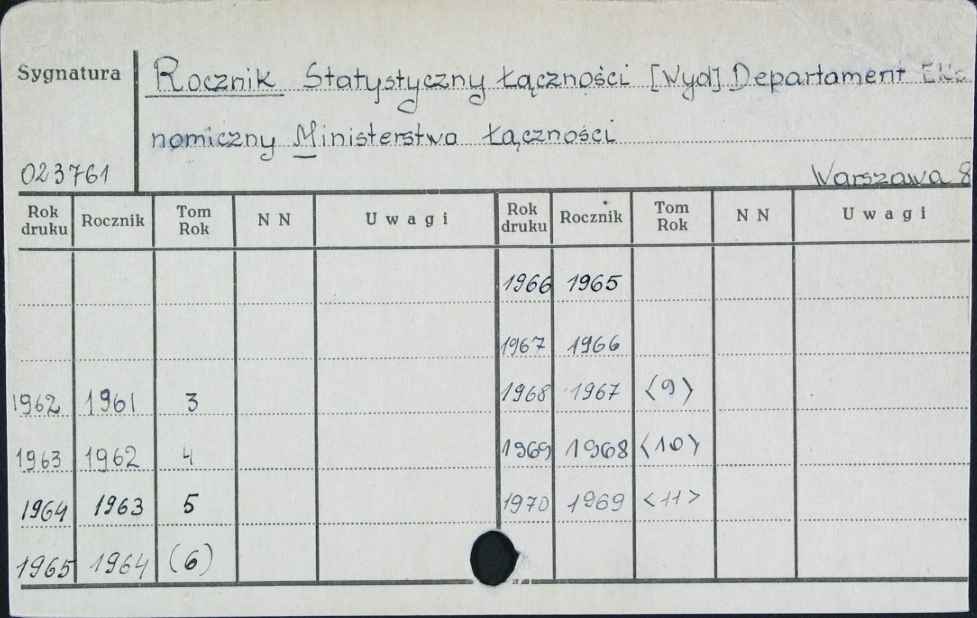 Sygnatura Rocznik Statystyczny Łączności [Wyd] Departament Eko
nomiczny Ministerstwa Łączności
023761 Warszawa 8
Rok druku Rocznik Tom Rok N N Uwagi Rok druku Rocznik Tom Rok N N Uwagi
1966 1965
1967 1966
1962 1961 3 1968 1967 <9>
1963 1962 4 1969 1968 <10>
1964 1963 5 1970 1969 <11>
1965 1964 (6)